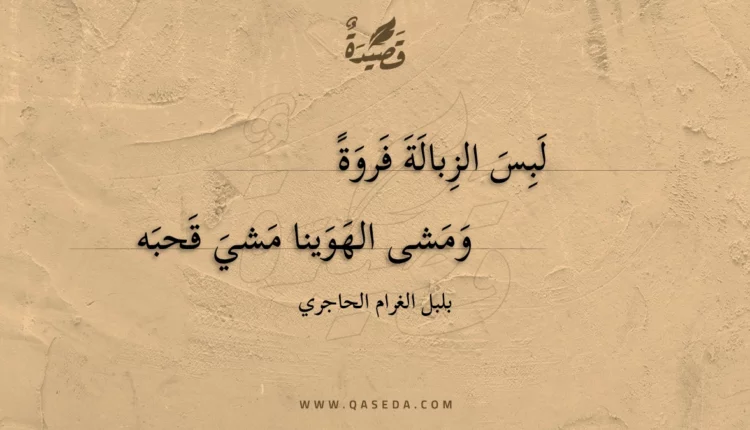 قَصِيدَةٌ
لَبِسَ الزِبالَةَ فَروَةً
وَمَشى الهَوَينا مَشيَ قَحبَه
بلبل الغرام الحاجري
WWW.QASEDA.COM